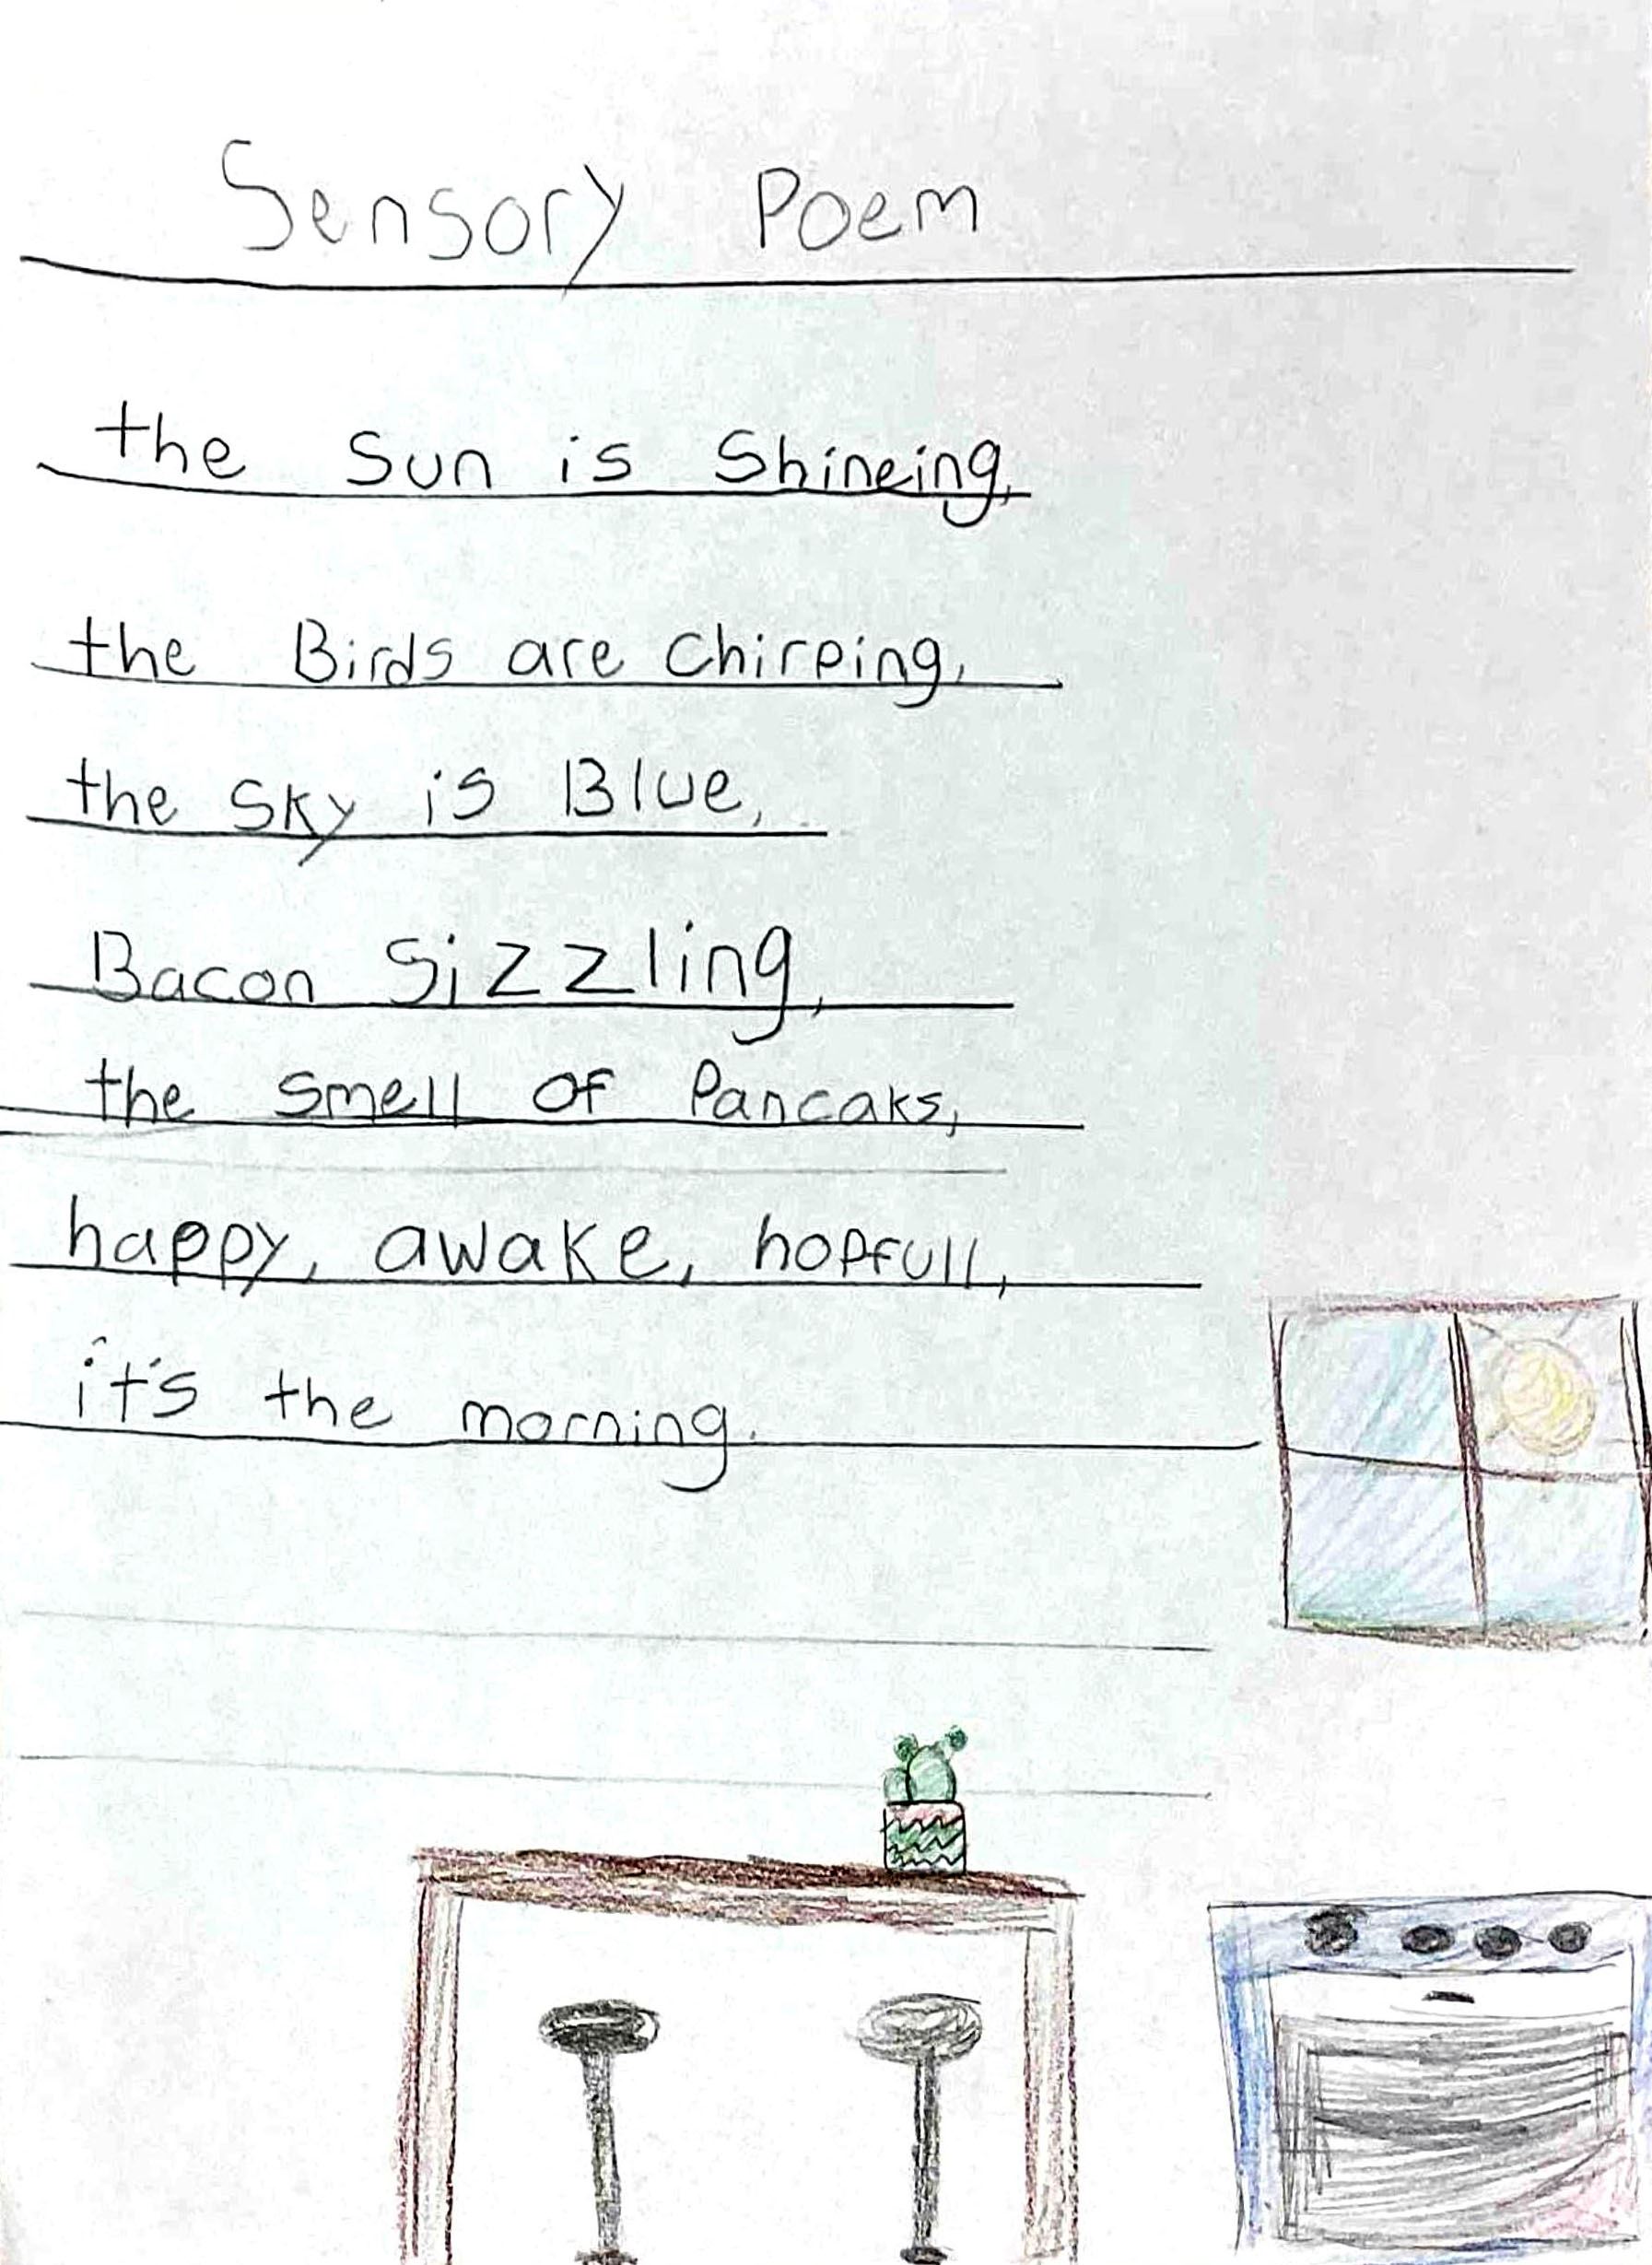 Sensory Poem
the Sun is Shineing,
the Birds are chirping,
the sky is Blue,
Bacon Sizzling,
the smell of Pancaks,
happy, awake, hopfull,
it's the morning.